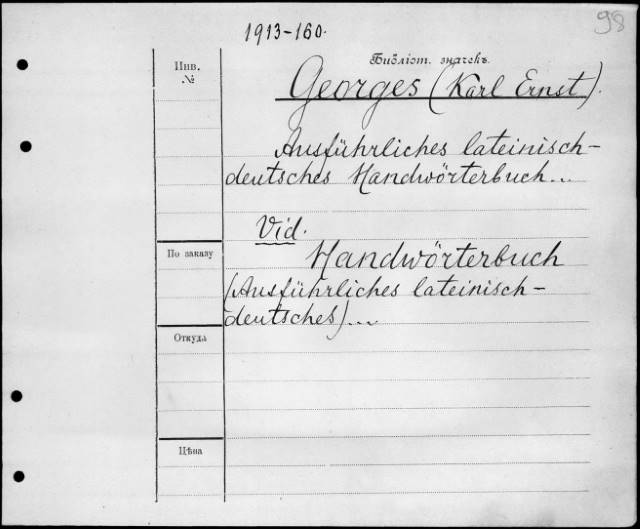 98
1913-160.
Библіот. значекъ.
Инв.
№
Georges (Karl Ernst).
Ausführliches lateinisch-
deutsches Handwörterbuch...
Vid.
По заказу
Handwörterbuch
(Ausführliches lateinisch-
deutsches)...
Откуда
Цѣна